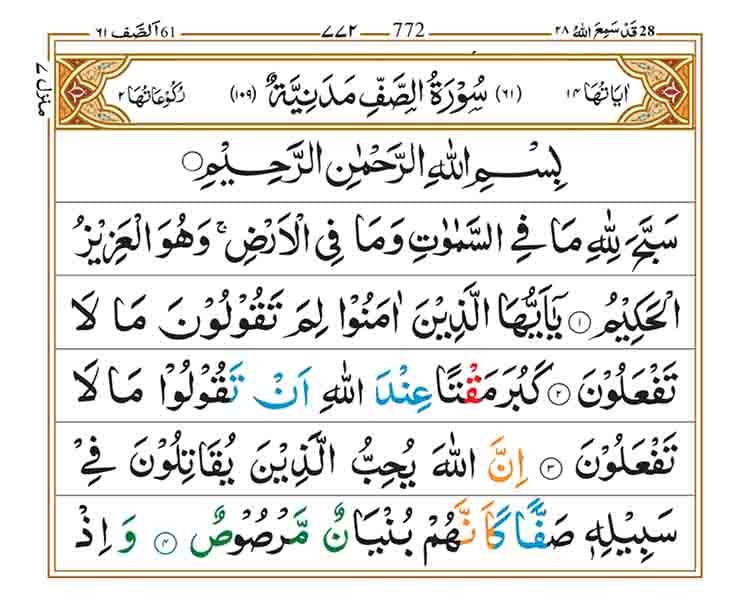 28 قَدْ سَمِعَ اللّٰهُ ٢٨ 772 ٧٧٢ 61 اَلصَّف ٦١
منزل ٧
اٰيَاتُهَا ١٤ (٦١) سُوْرَةُ الصَّفِّ مَدَنِيَّةٌ (١٠٩) رُكُوْعَاتُهَا ٢
بِسْمِ اللّٰهِ الرَّحْمٰنِ الرَّحِيْمِ۝
سَبَّحَ لِلّٰهِ مَا فِي السَّمٰوٰتِ وَمَا فِي الْاَرْضِ ۚ وَهُوَ الْعَزِيْزُ
الْحَكِيْمُ ۝١ يٰٓاَيُّهَا الَّذِيْنَ اٰمَنُوْا لِمَ تَقُوْلُوْنَ مَا لَا
تَفْعَلُوْنَ ۝٢ كَبُرَ مَقْتًا عِنْدَ اللّٰهِ اَنْ تَقُوْلُوْا مَا لَا
تَفْعَلُوْنَ ۝٣ اِنَّ اللّٰهَ يُحِبُّ الَّذِيْنَ يُقَاتِلُوْنَ فِيْ
سَبِيْلِهٖ صَفًّا كَاَنَّهُمْ بُنْيَانٌ مَّرْصُوْصٌ ۝٤ وَاِذْ